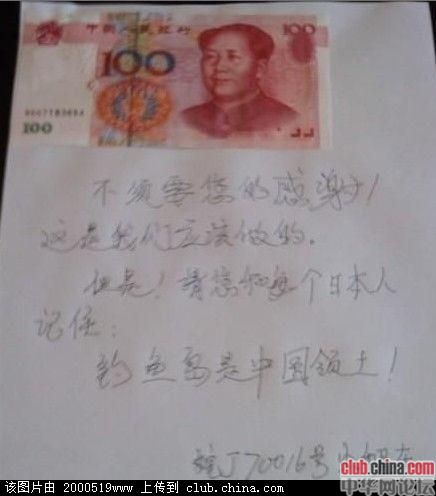 中国人民银行
100
100
100
不须要您的感谢！
这是我们应该做的。
但是！请您和每个日本人
记住：
钓鱼岛是中国领土！
J70016号
club.china.com
中华网论坛
该图片由 2000519www 上传到 club.china.com